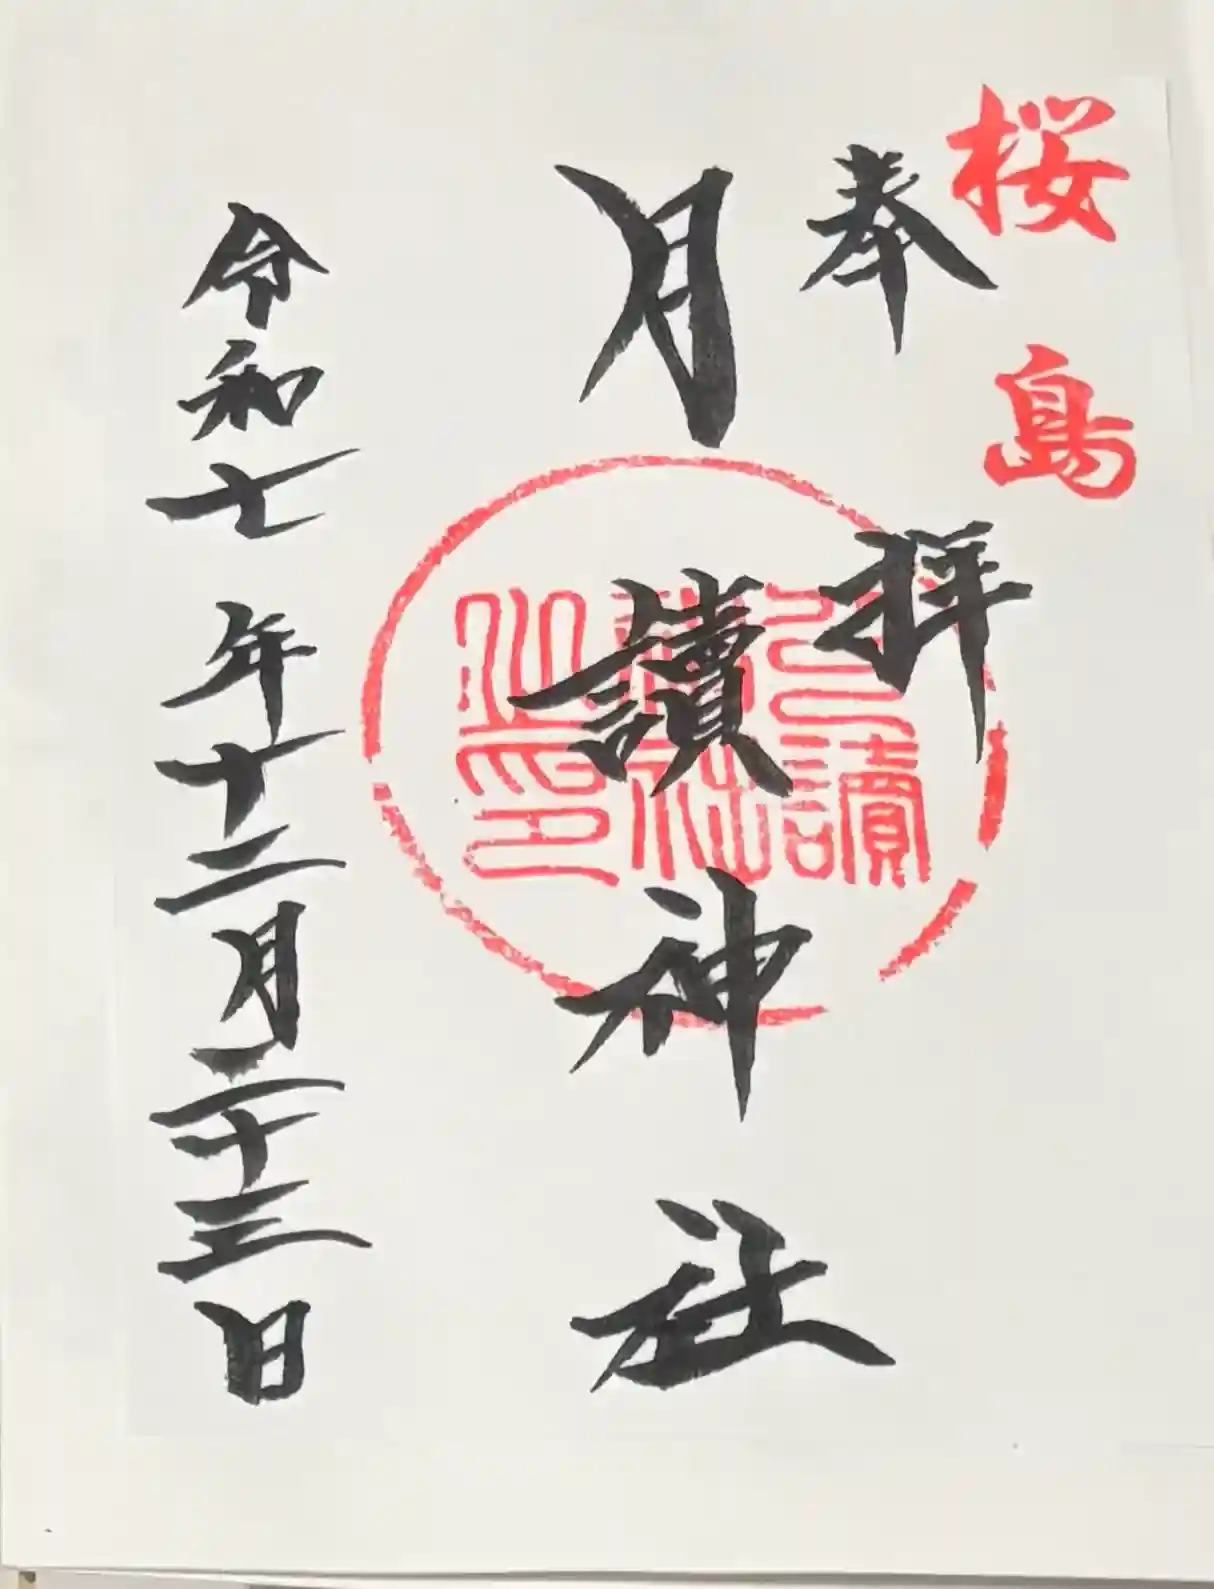 桜島
奉拝
月讀神社
令和七年十二月二十三日
月讀神社之印